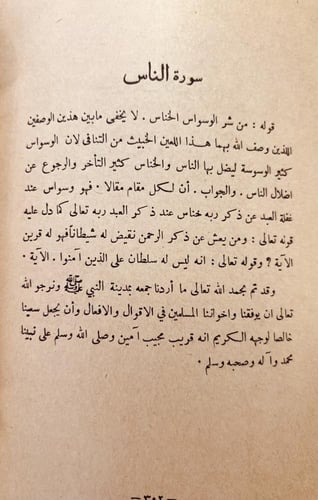 سورة الناس
قوله : من شر الوسواس الخناس . لا يخفى مابين هذين الوصفين
اللذين وصف الله بهما هذا اللعين الخبيث من التنافى لان الوسواس
كثير الوسوسة ليضل بها الناس والخناس كثير التأخر والرجوع عن
اضلال الناس . والجواب . أن لكل مقام مقالا . فهو وسواس عند
غفلة العبد عن ذكر ربه خناس عند ذكر العبد ربه تعالى كما دل عليه
قوله تعالى : ومن يعش عن ذكر الرحمن نقيض له شيطانافهو له قرين
الآية ? وقوله تعالى : انه ليس له سلطان على الذين آمنوا . الآية .
وقد تم بحمد الله تعالى ما أردنا جمعه بمدينة النبي ﷺ ونرجو الله
تعالى ان يوفقنا واخواننا المسلمين في الاقوال والافعال وأن يجعل سعينا
خالصا لوجهه الكريم انه قريب مجيب آمين وصلى الله وسلم على نبينا
محمد وآله وصحبه وسلم .
— ٣٥٢ —